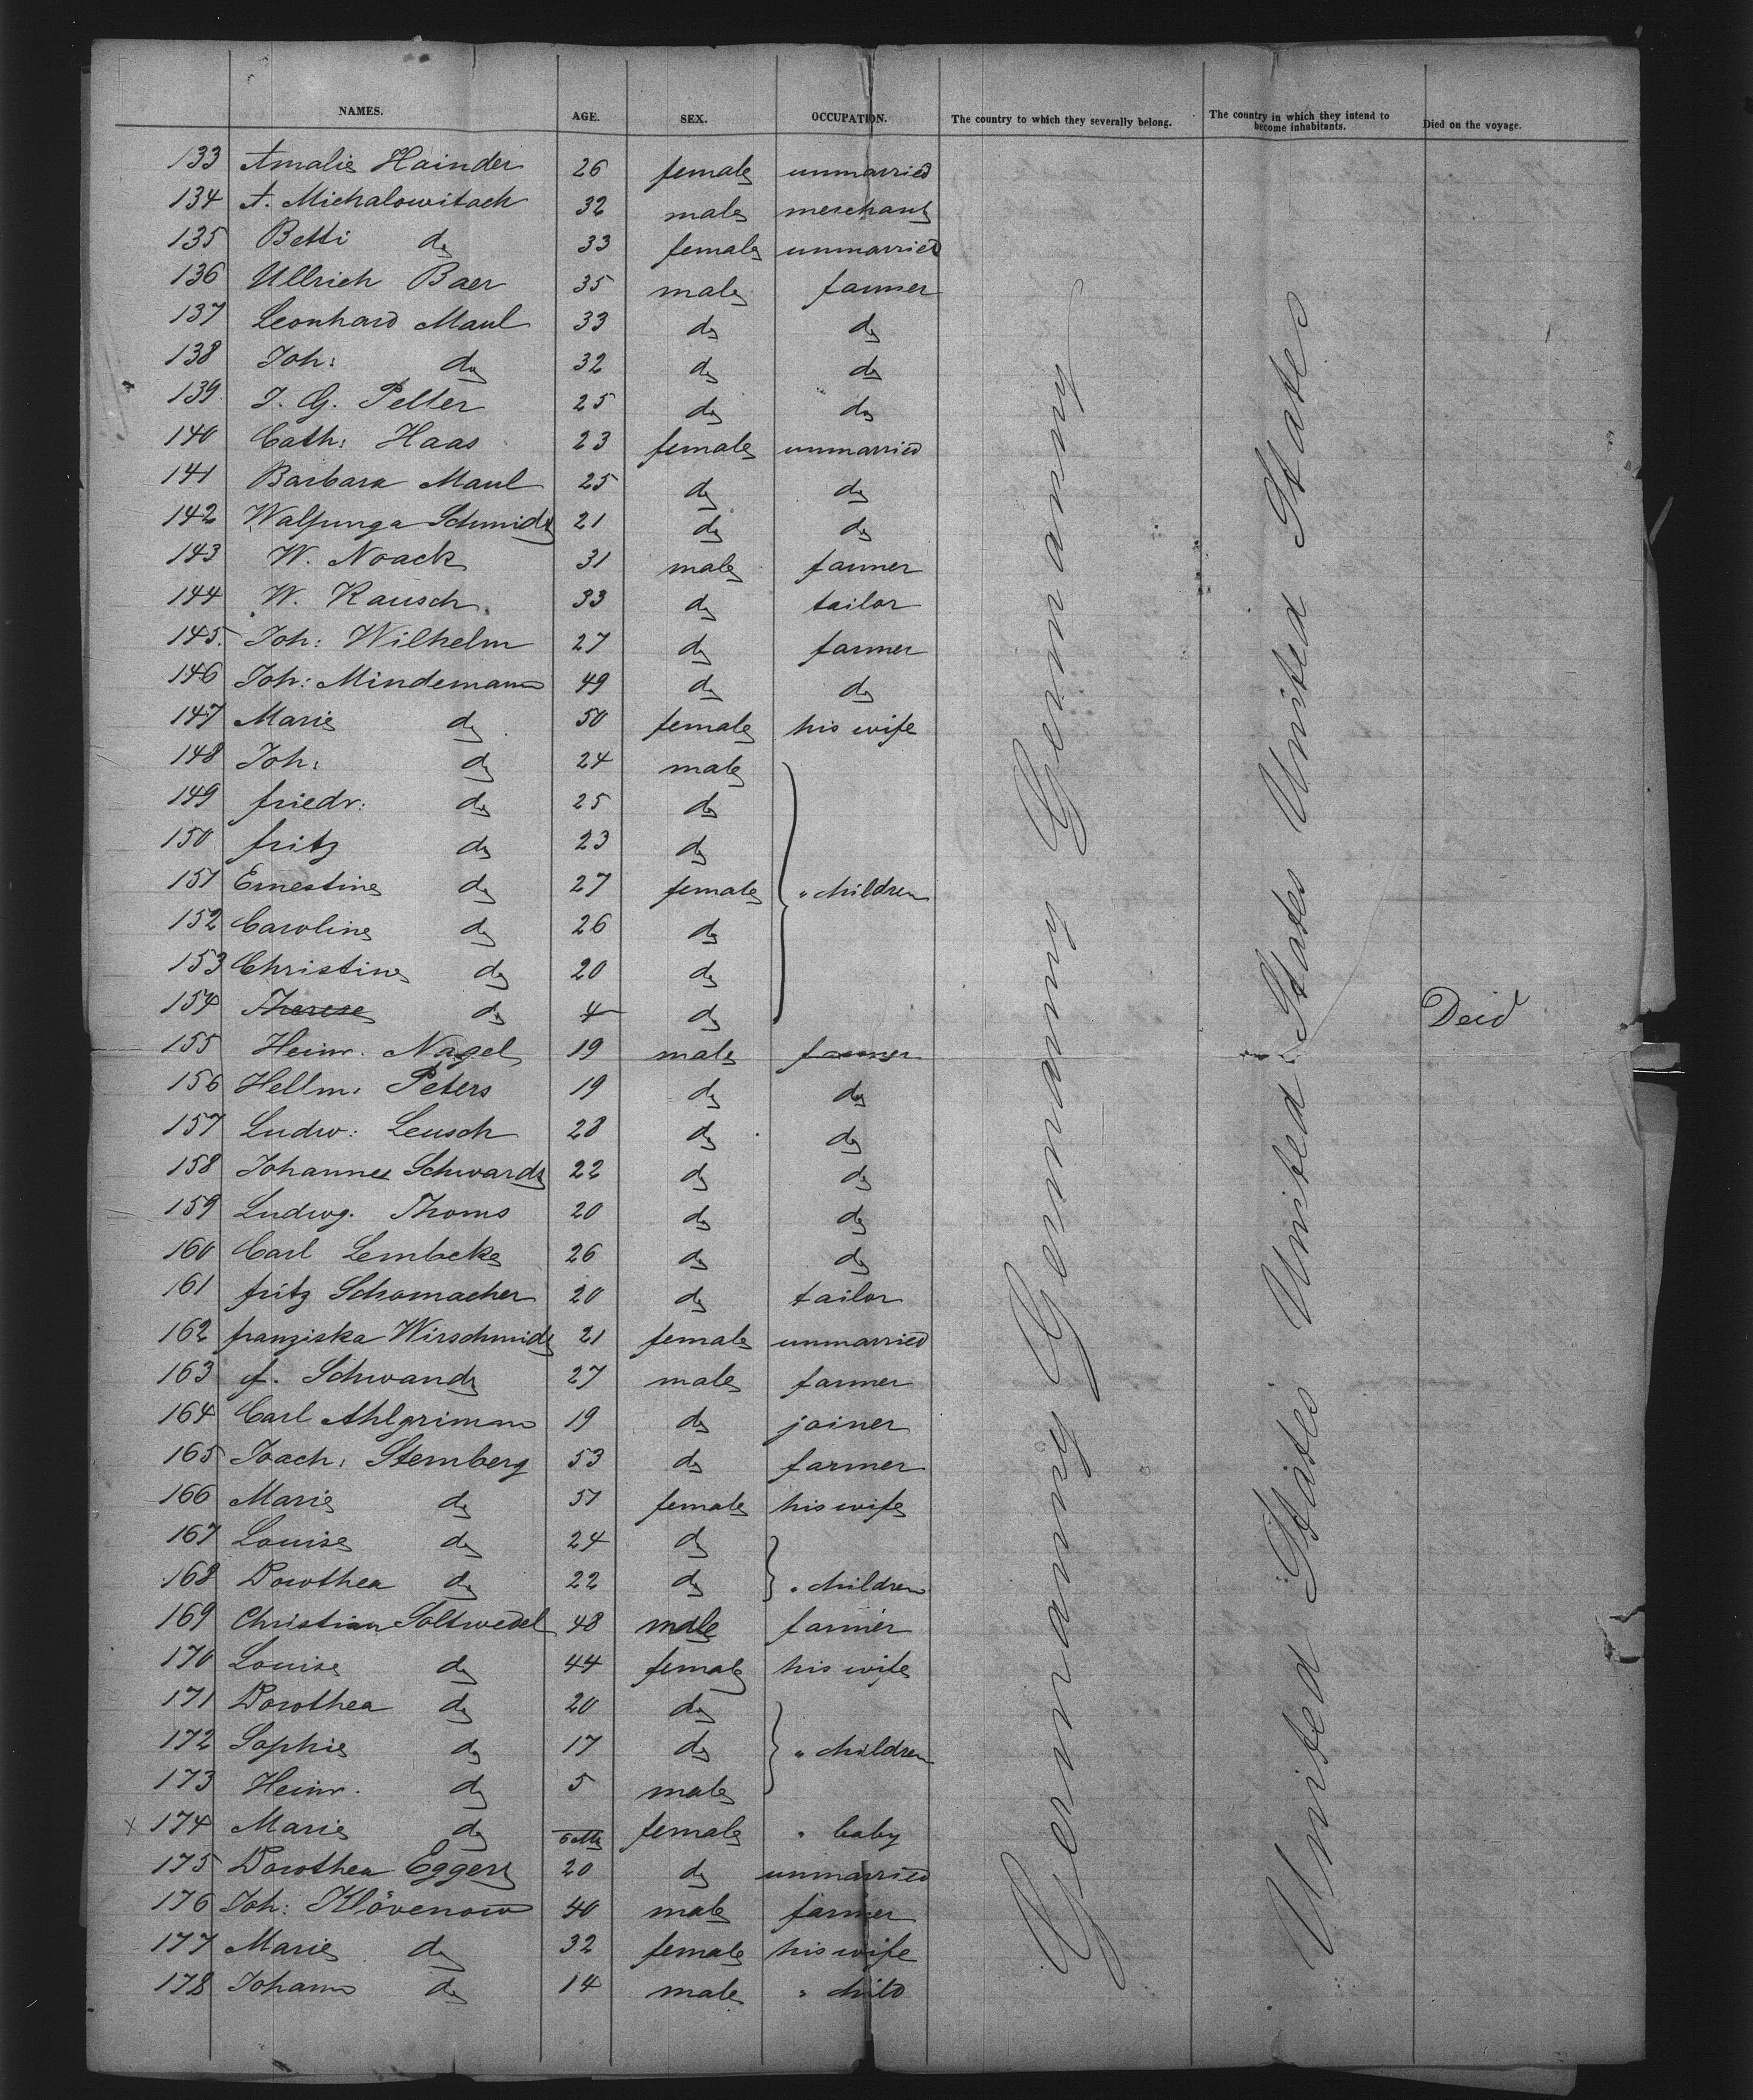 NAMES. AGE. SEX. OCCUPATION. The country to which they severally belong. The country in which they intend to become inhabitants. Died on the voyage.
133 Amalie Hainder 26 female unmarried
134 A. Michalowitsch 32 male merchant
135 Betti do 33 female unmarried
136 Ullrich Baer 35 male farmer
137 Leonhard Maul 33 do do
138 Joh: do 32 do do
139 J. G. Pelter 25 do do
140 Cath: Haas 23 female unmarried
141 Barbara Maul 25 do do
142 Walpunga Schmidt 21 do do
143 W. Noack 31 male farmer
144 W. Rausch 33 do tailor
145. Joh: Wilhelm 27 do farmer
146 Joh: Mindemann 49 do do
147 Marie do 50 female his wife
148 Joh: do 24 male
149 friedr: do 25 do
150 fritz do 23 do
151 Ernestine do 27 female " children
152 Caroline do 26 do
153 Christine do 20 do
154 Therese do 4 do Deid
155 Heinr. Nagel 19 male farmer
156 Hellm: Peters 19 do do
157 Ludw: Leusch 28 do do
158 Johannes Schwardt 22 do do
159 Ludwg. Thoms 20 do do
160 Carl Lembcke 26 do do
161 fritz Schomacher 20 do tailor
162 franziska Wirschmidt 21 female unmarried
163 f. Schwandt 27 male farmer
164 Carl Ahlgrimm 19 do joiner
165 Joach: Sternberg 53 do farmer
166 Marie do 51 female his wife
167 Louise do 24 do
168 Dorothea do 22 do " children
169 Christian Soltwedel 48 male farmer
170 Louise do 44 female his wife
171 Dorothea do 20 do
172 Sophie do 17 do " children
173 Heinr. do 5 male
x 174 Marie do 6 Mt female " baby
175 Dorothea Eggers 20 do unmarried
176 Joh: Klövenow 40 male farmer
177 Marie do 32 female his wife
178 Johann do 14 male " child
Germany Germany Germany Germany
United States United States United States